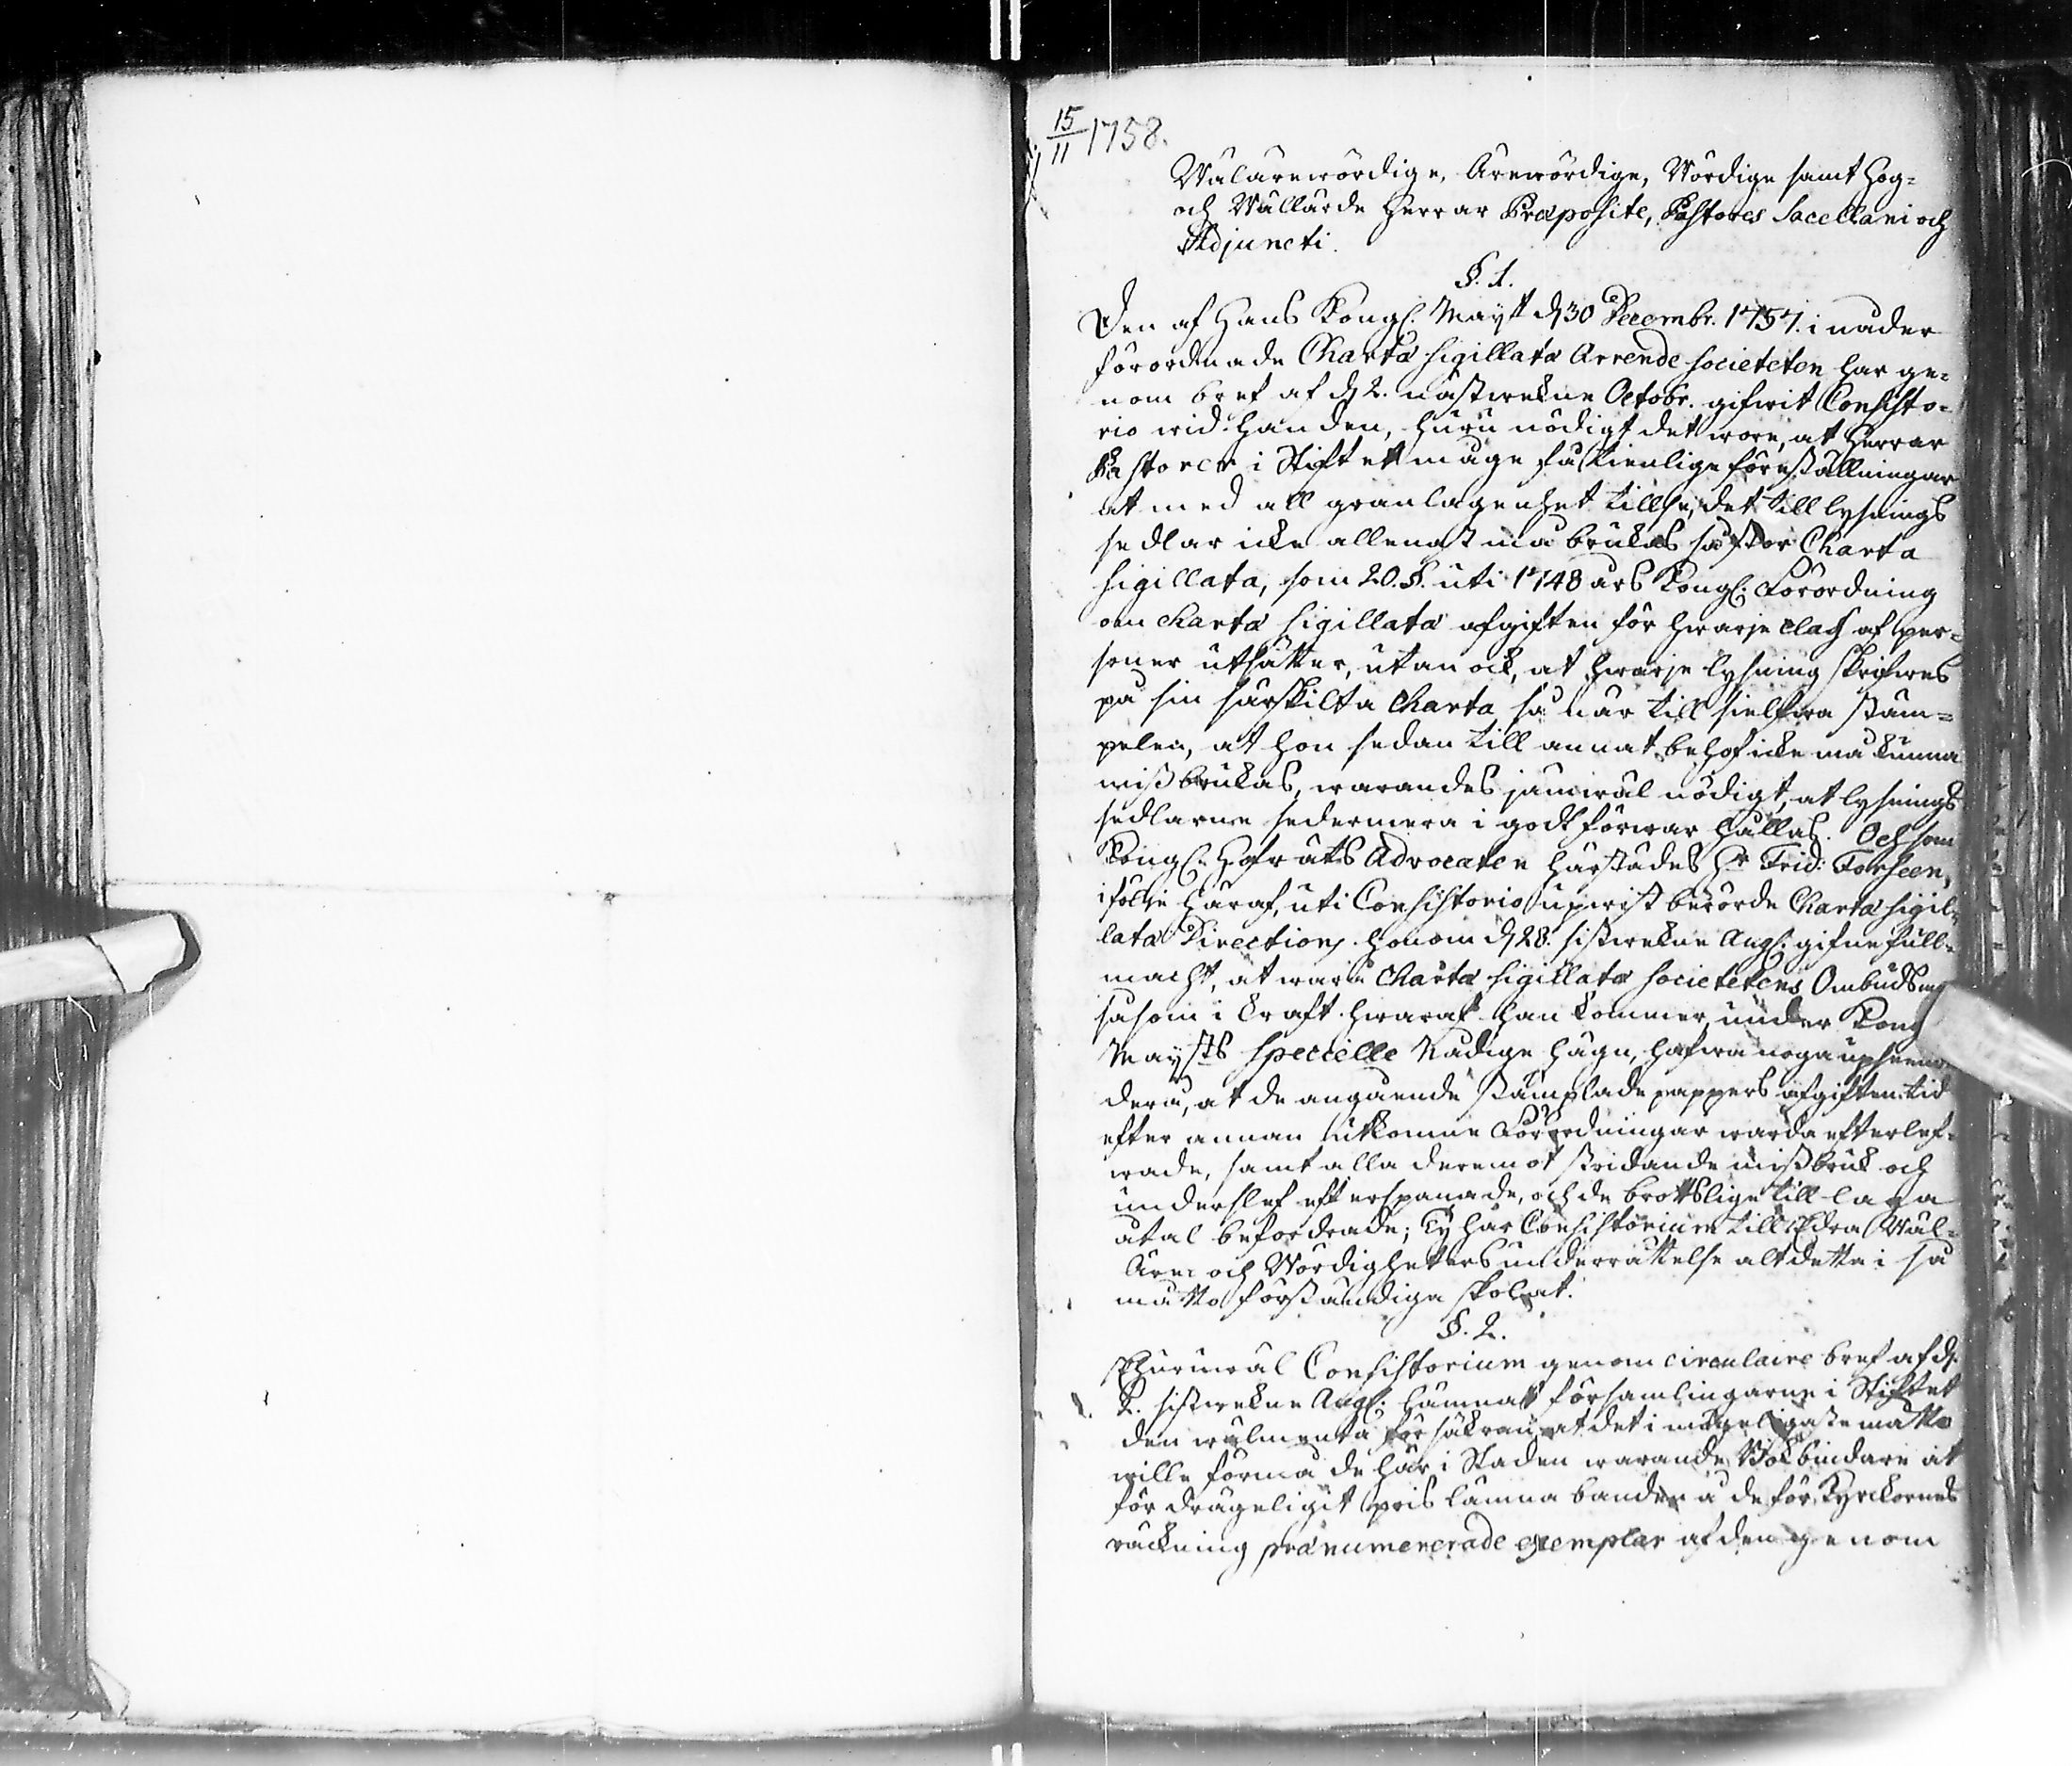 15/11 1758.
Wälärewördige, Ärewördige, Wördige samt Hög-
och Wällärde Herrar Præposite, Pastores Sacellani och
Adjuncti.
§. 1.
Den af Hans Kongl. Mayt d 30 Decembr. 1757. i nåder
förordnade Charta sigillatæ Arrende societeten har ge-
nom bref af d 2. nästwekne Octobr. gifwit Consisto-
rio wid handen, huru nödigt det wore, at Herrar
Pastorer i Stiftet måge få tienlige föreställningar
at med all granlagenhet tillse, det till lysnings
sedlar icke allenast må brukas så stor Charta
sigillata, som 20. §. uti 1748 års Kongl. Förordning
om charta sigillatæ afgiften för hwarje clas af per-
soner utsätter, utan ock, at hwarje lysning skrifwes
på sin särskilta charta så när till sielfwa stäm-
pelen, at hon sedan till annat behof icke må kunna
missbrukas, warandes jämwäl nödigt, at lysnings
sedlarne sedermera i godt förwar hållas. Och som
Kongl. Hofräts Advocaten härstädes Hr Frid: Forseen,
i följe häraf, uti Consistorio upwist berörde Charta sigil-
latæ Directions honom d 28. sistwekne Aug. gifne full-
macht, at wara Charta sigillatæ societetens Ombudsm
såsom i kraft hwaraf han kommer, under Kong
Mayts specielle Nådige hägn, hafwa noga upseende
derå, at de angående stämplade pappers afgiften tid
efter annan utkomne Förordningar warda efterlef-
wade, samt alla deremot stridande missbruk och
underslef efterspanade, och de brottslige till laga
åtal befordrade; Ty har Consistorium till Edra Wäl-
Äre och Wördigheters underrättelse alt detta i så
måtto förständiga skolat.
§. 2.
Ehuruwäl Consistorium genom circulaire bref af d.
2. sistwekne Aug. lämnat församlingarne i Stiftet
den wälmenta försäkran, at det i möyeligaste måtto
wille förmå de här i Staden warande Bokbindare at
för drägeligit pris lämna banden å de för Kyrckornes
räckning prænumererade exemplar af den genom